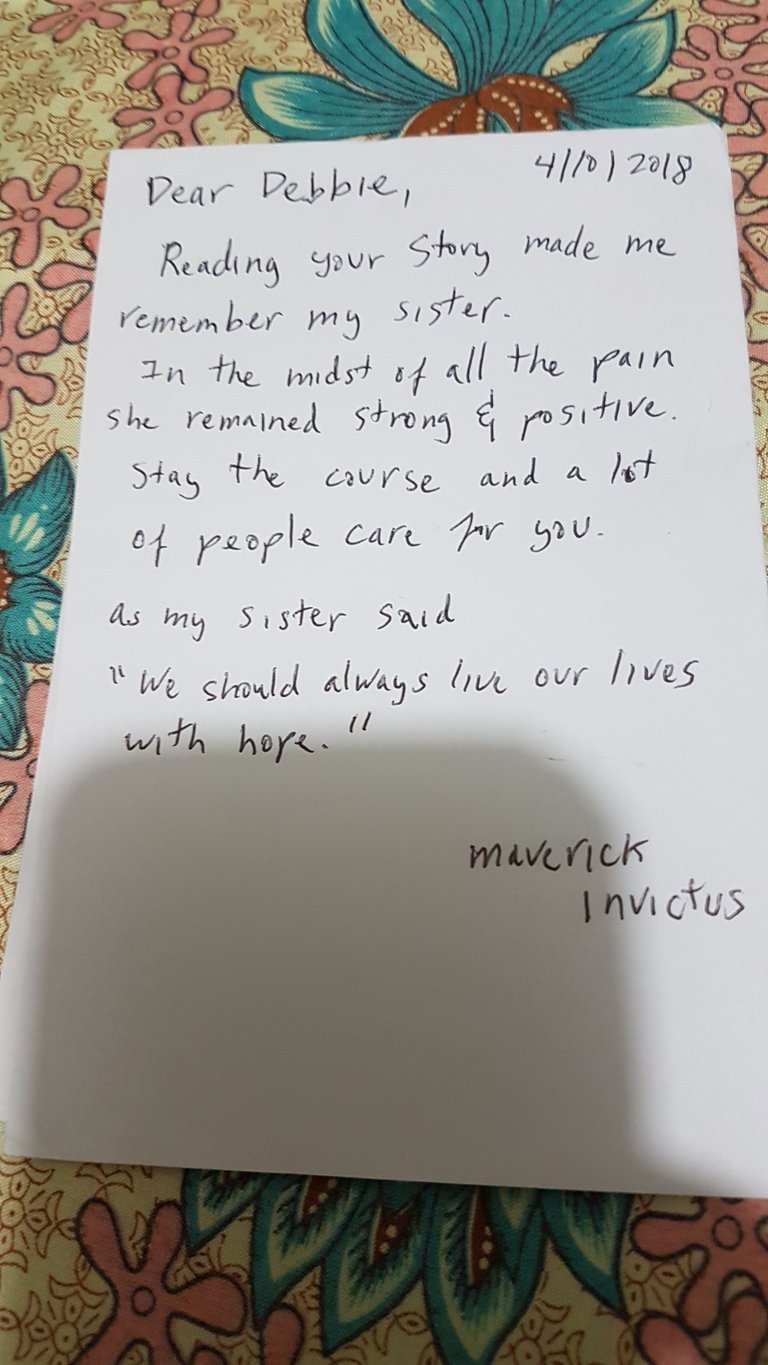 4/10/2018
Dear Debbie,
Reading your story made me
remember my sister.
In the midst of all the pain
she remained strong & positive.
Stay the course and a lot
of people care for you.
as my sister said
"We should always live our lives
with hope."
maverick
invictus